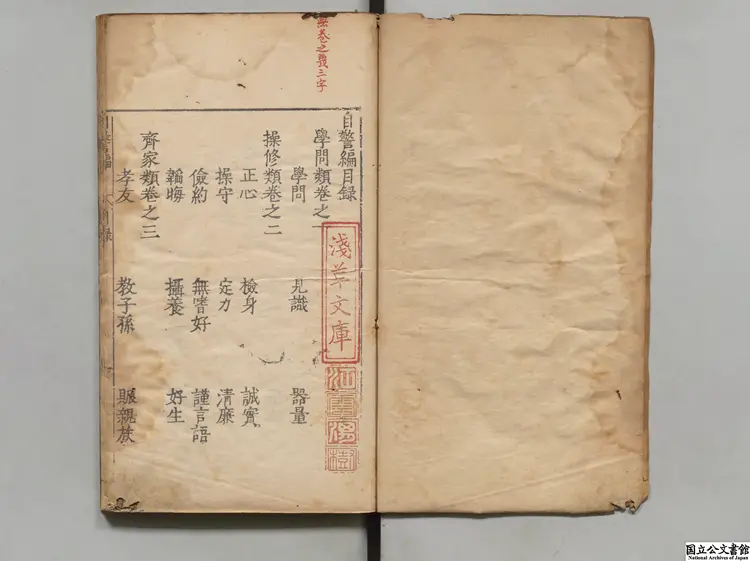 無卷之幾三字
自警編目録
學問類卷之一
學問 見識 器量
操修類卷之二
正心 檢身 誠實
操守 定力 清廉
儉約 無嗜好 謹言語
韜晦 攝養 好生
齊家類卷之三
孝友 教子孫 賑親族
淺草文庫
国立公文書館
National Archives of Japan